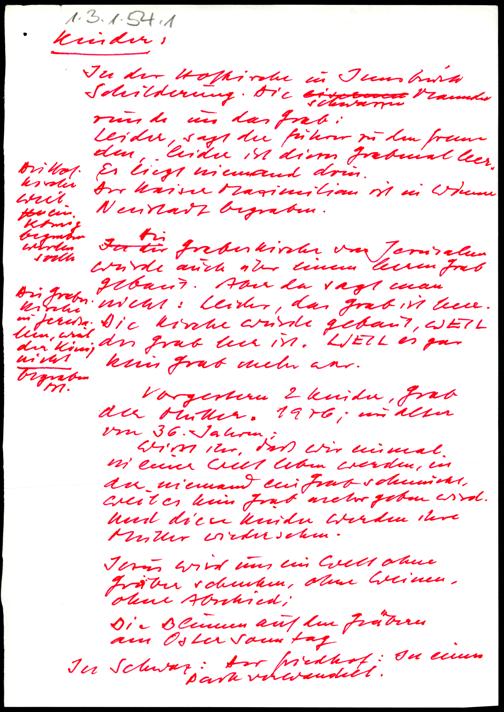 1.3.1.54.1
Kinder:
In der Hofkirche in Innsbruck
Schilderung. Die schwarzen Männer
runde um das Grab:
Leider, sagt der Führer zu den Frem
den, leider ist dieses Grabmal leer.
Es liegt niemand drin.
Der Kaiser Maximilian ist in Wiener
Neustadt begraben.
Die Hof-
kirche
weil
ein
König
begraben
werden
sollte
Die Grabeskirche von Jerusalem
wurde auch über einem leeren Grab
gebaut. Aber da sagt man
nicht: Leider, das Grab ist leer.
Die Kirche wurde gebaut, WEIL
das Grab leer ist. WEIL es gar
kein Grab mehr war.
Die Grabes-
kirche
in Jerusa-
lem, weil
der König
nicht
begraben
ist.
Vorgestern 2 Kinder, Grab
der Mutter. 1976, im Alter
von 36 Jahren:
Wisst ihr, daß wir einmal
in einer Welt leben werden, in
der niemand ein Grab schmückt,
weil es kein Grab mehr geben wird.
Und diese Kinder werden ihre
Mutter wiedersehen.
Jesus wird uns ein Welt ohne
Gräber schenken, ohne Weinen,
ohne Abschied;
Die Blumen auf den Gräbern
am Ostersonntag
In Schwaz: Der Friedhof: In einen
Park verwandelt.